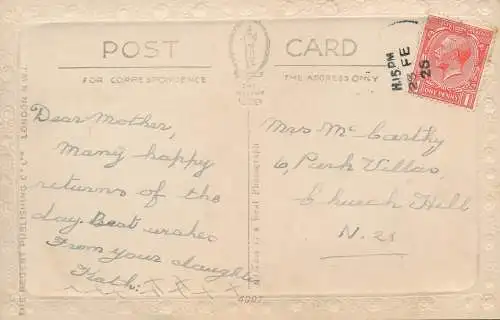 POST CARD
FOR CORRESPONDENCE
THE ADDRESS ONLY
H15PM
23 FE
25
ONE PENNY
Dear Mother,
Many happy
returns of the
day. Best wishes
From your daughter
Kath. x x x x
Mrs McCarthy
6, Park Villas,
Church Hill
N. 21
THE REGENT PUBLISHING Co Ltd LONDON N.W.1.
is a Real Photograph
4007